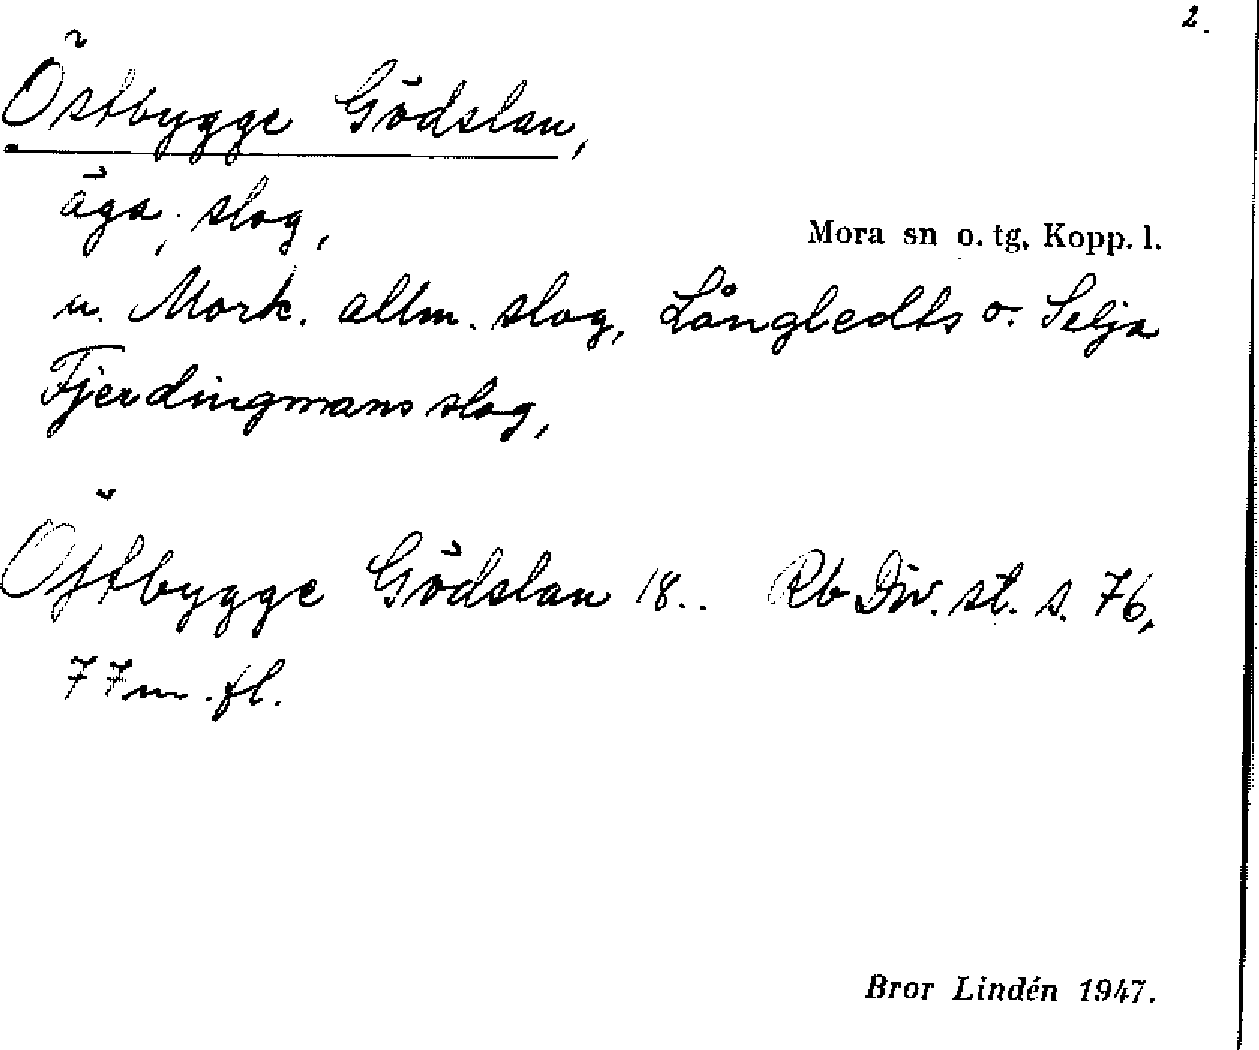 2.
Östbygge Gödslan,
äga, slog,
Mora sn o. tg, Kopp. l.
u. Mork. allm. slog, Långledts o. Selja
Fjerdingmans slog,
Östbygge Gödslan 18.. Rb Div. st. s. 76,
77 m. fl.
Bror Lindén 1947.